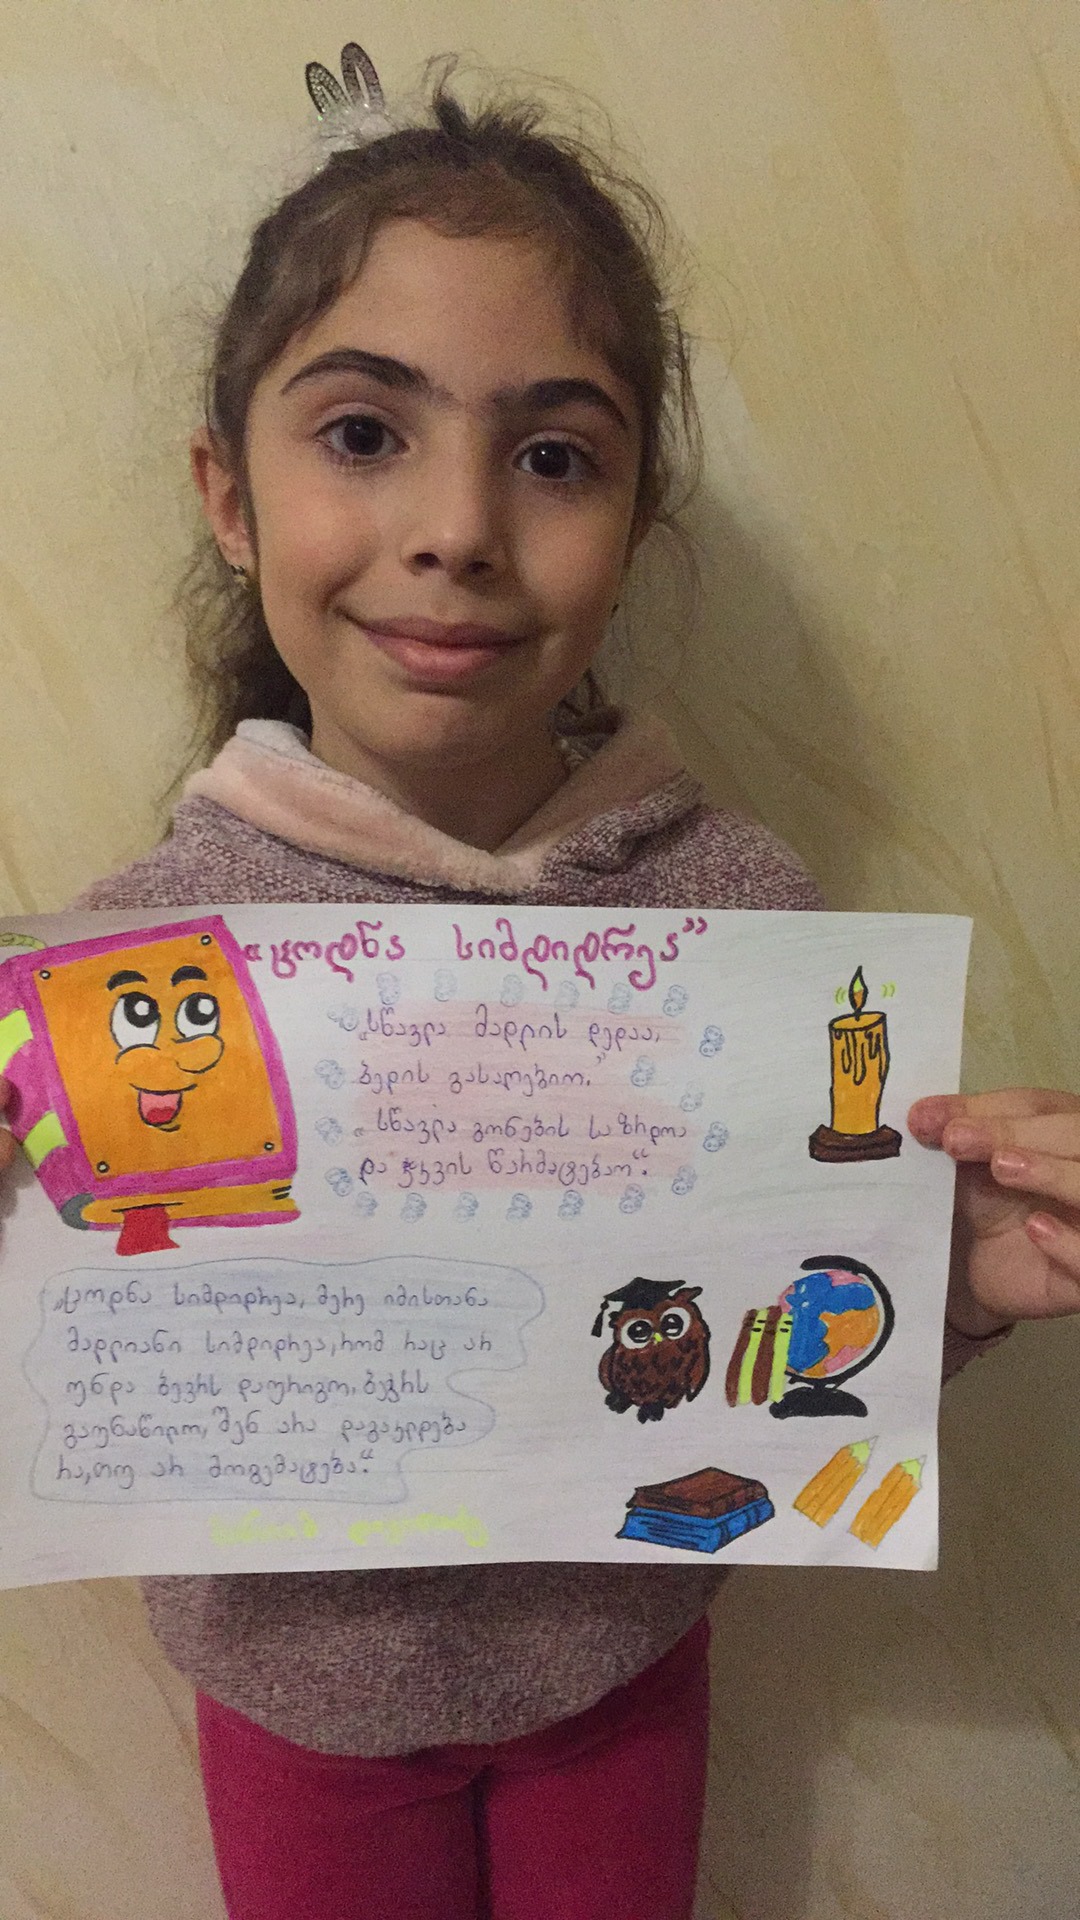 „ცოდნა სიმდიდრეა”
„სწავლა მადლის დედაა,
ბედის გასაღებიო.”
„სწავლა გონების საზრდოა
და ჭკვის წარმატებაო“.
„ცოდნა სიმდიდრეა, მერე იმისთანა
მადლიანი სიმდიდრეა, რომ რაც არ
უნდა ბევრს დაურიგო, ბევრს
გაუნაწილო, შენ არა დაგაკლდება
რა, თუ არ მოგემატება.“